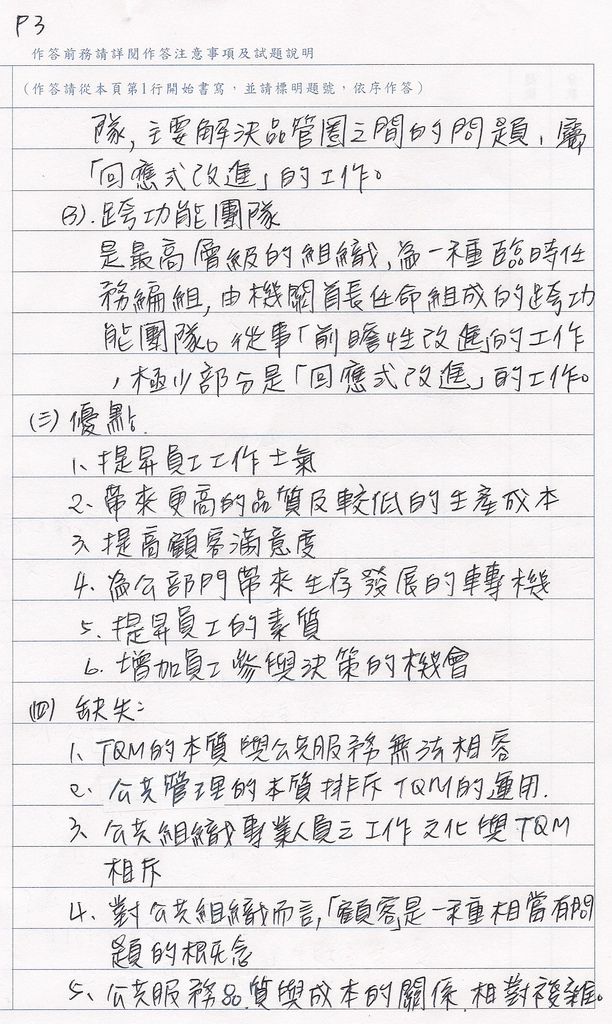 P3
作答前務請詳閱作答注意事項及試題說明
(作答請從本頁第1行開始書寫，並請標明題號，依序作答)
隊，主要解決品管圈之間的問題，屬
「回應式改進」的工作。
(3).跨功能團隊
是最高層級的組織，為一種臨時任
務編組，由機關首長任命組成的跨功
能團隊。從事「前瞻性改進」的工作
，極少部分是「回應式改進」的工作。
(三)優點.
1、提昇員工工作士氣
2、帶來更高的品質及較低的生產成本
3、提高顧客滿意度
4、為公部門帶來生存發展的轉機
5、提昇員工的素質
6、增加員工參與決策的機會
(四)缺失：
1、TQM的本質與公共服務無法相容
2、公共管理的本質排斥TQM的運用.
3、公共組織專業人員之工作文化與TQM
相斥
4、對公共組織而言，「顧客」是一種相當有問
題的概念
5、公共服務品質與成本的關係相對複雜。